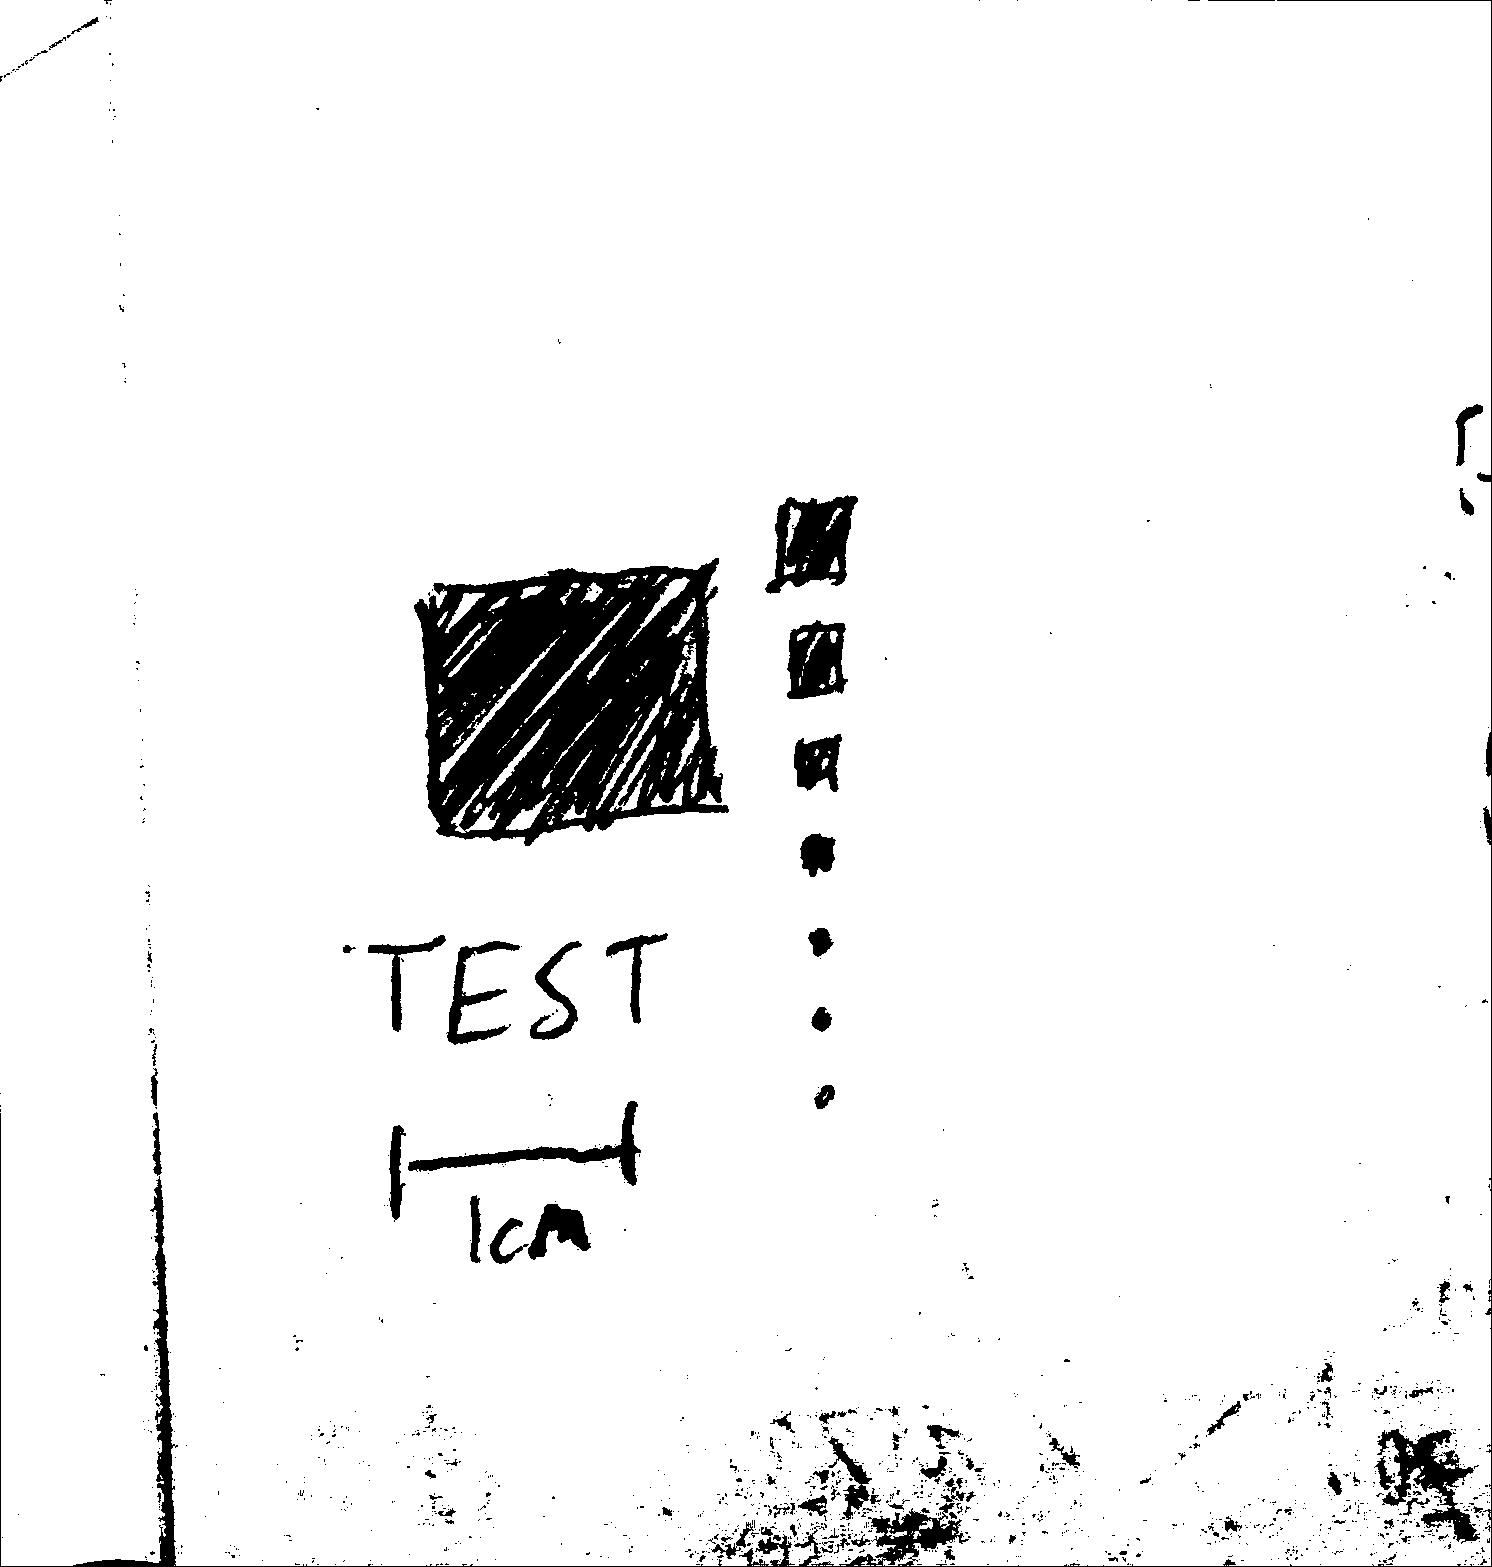 TEST
1cm